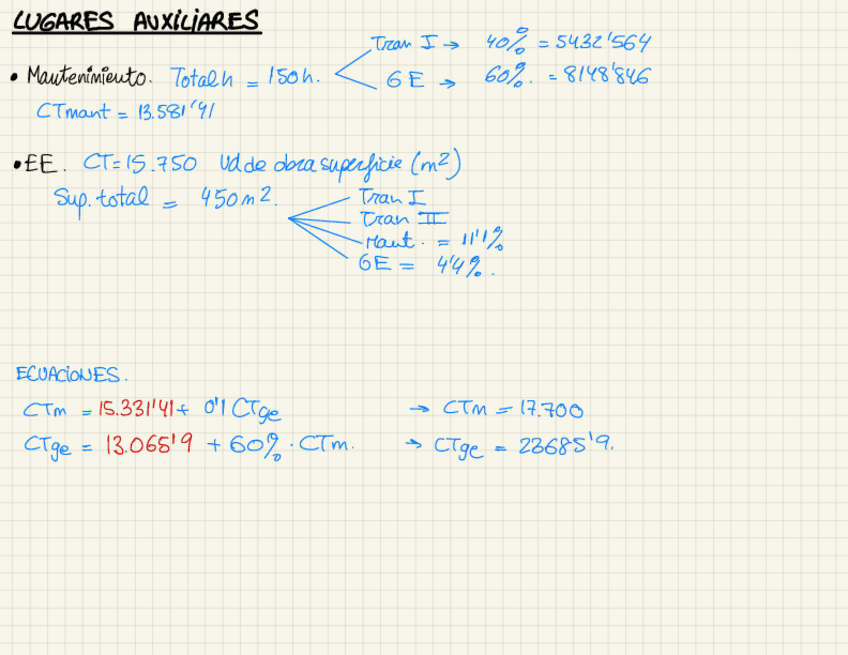 LUGARES AUXILIARES
• Mantenimiento. Total h = 150 h.
Tran I → 40% = 5432'564
GE → 60%. = 8148'846
CTmant = 13.581'41
• EE. CT=15.750 Ud de obra superficie (m2)
Sup. total = 450 m2.
Tran I
Tran II
Mant. = 11'1%
GE = 4'4%.
ECUACIONES.
CTm = 15.331'41 + 0'1 CTge → CTm = 17.700
CTge = 13.065'9 + 60% · CTm. → CTge = 23685'9.